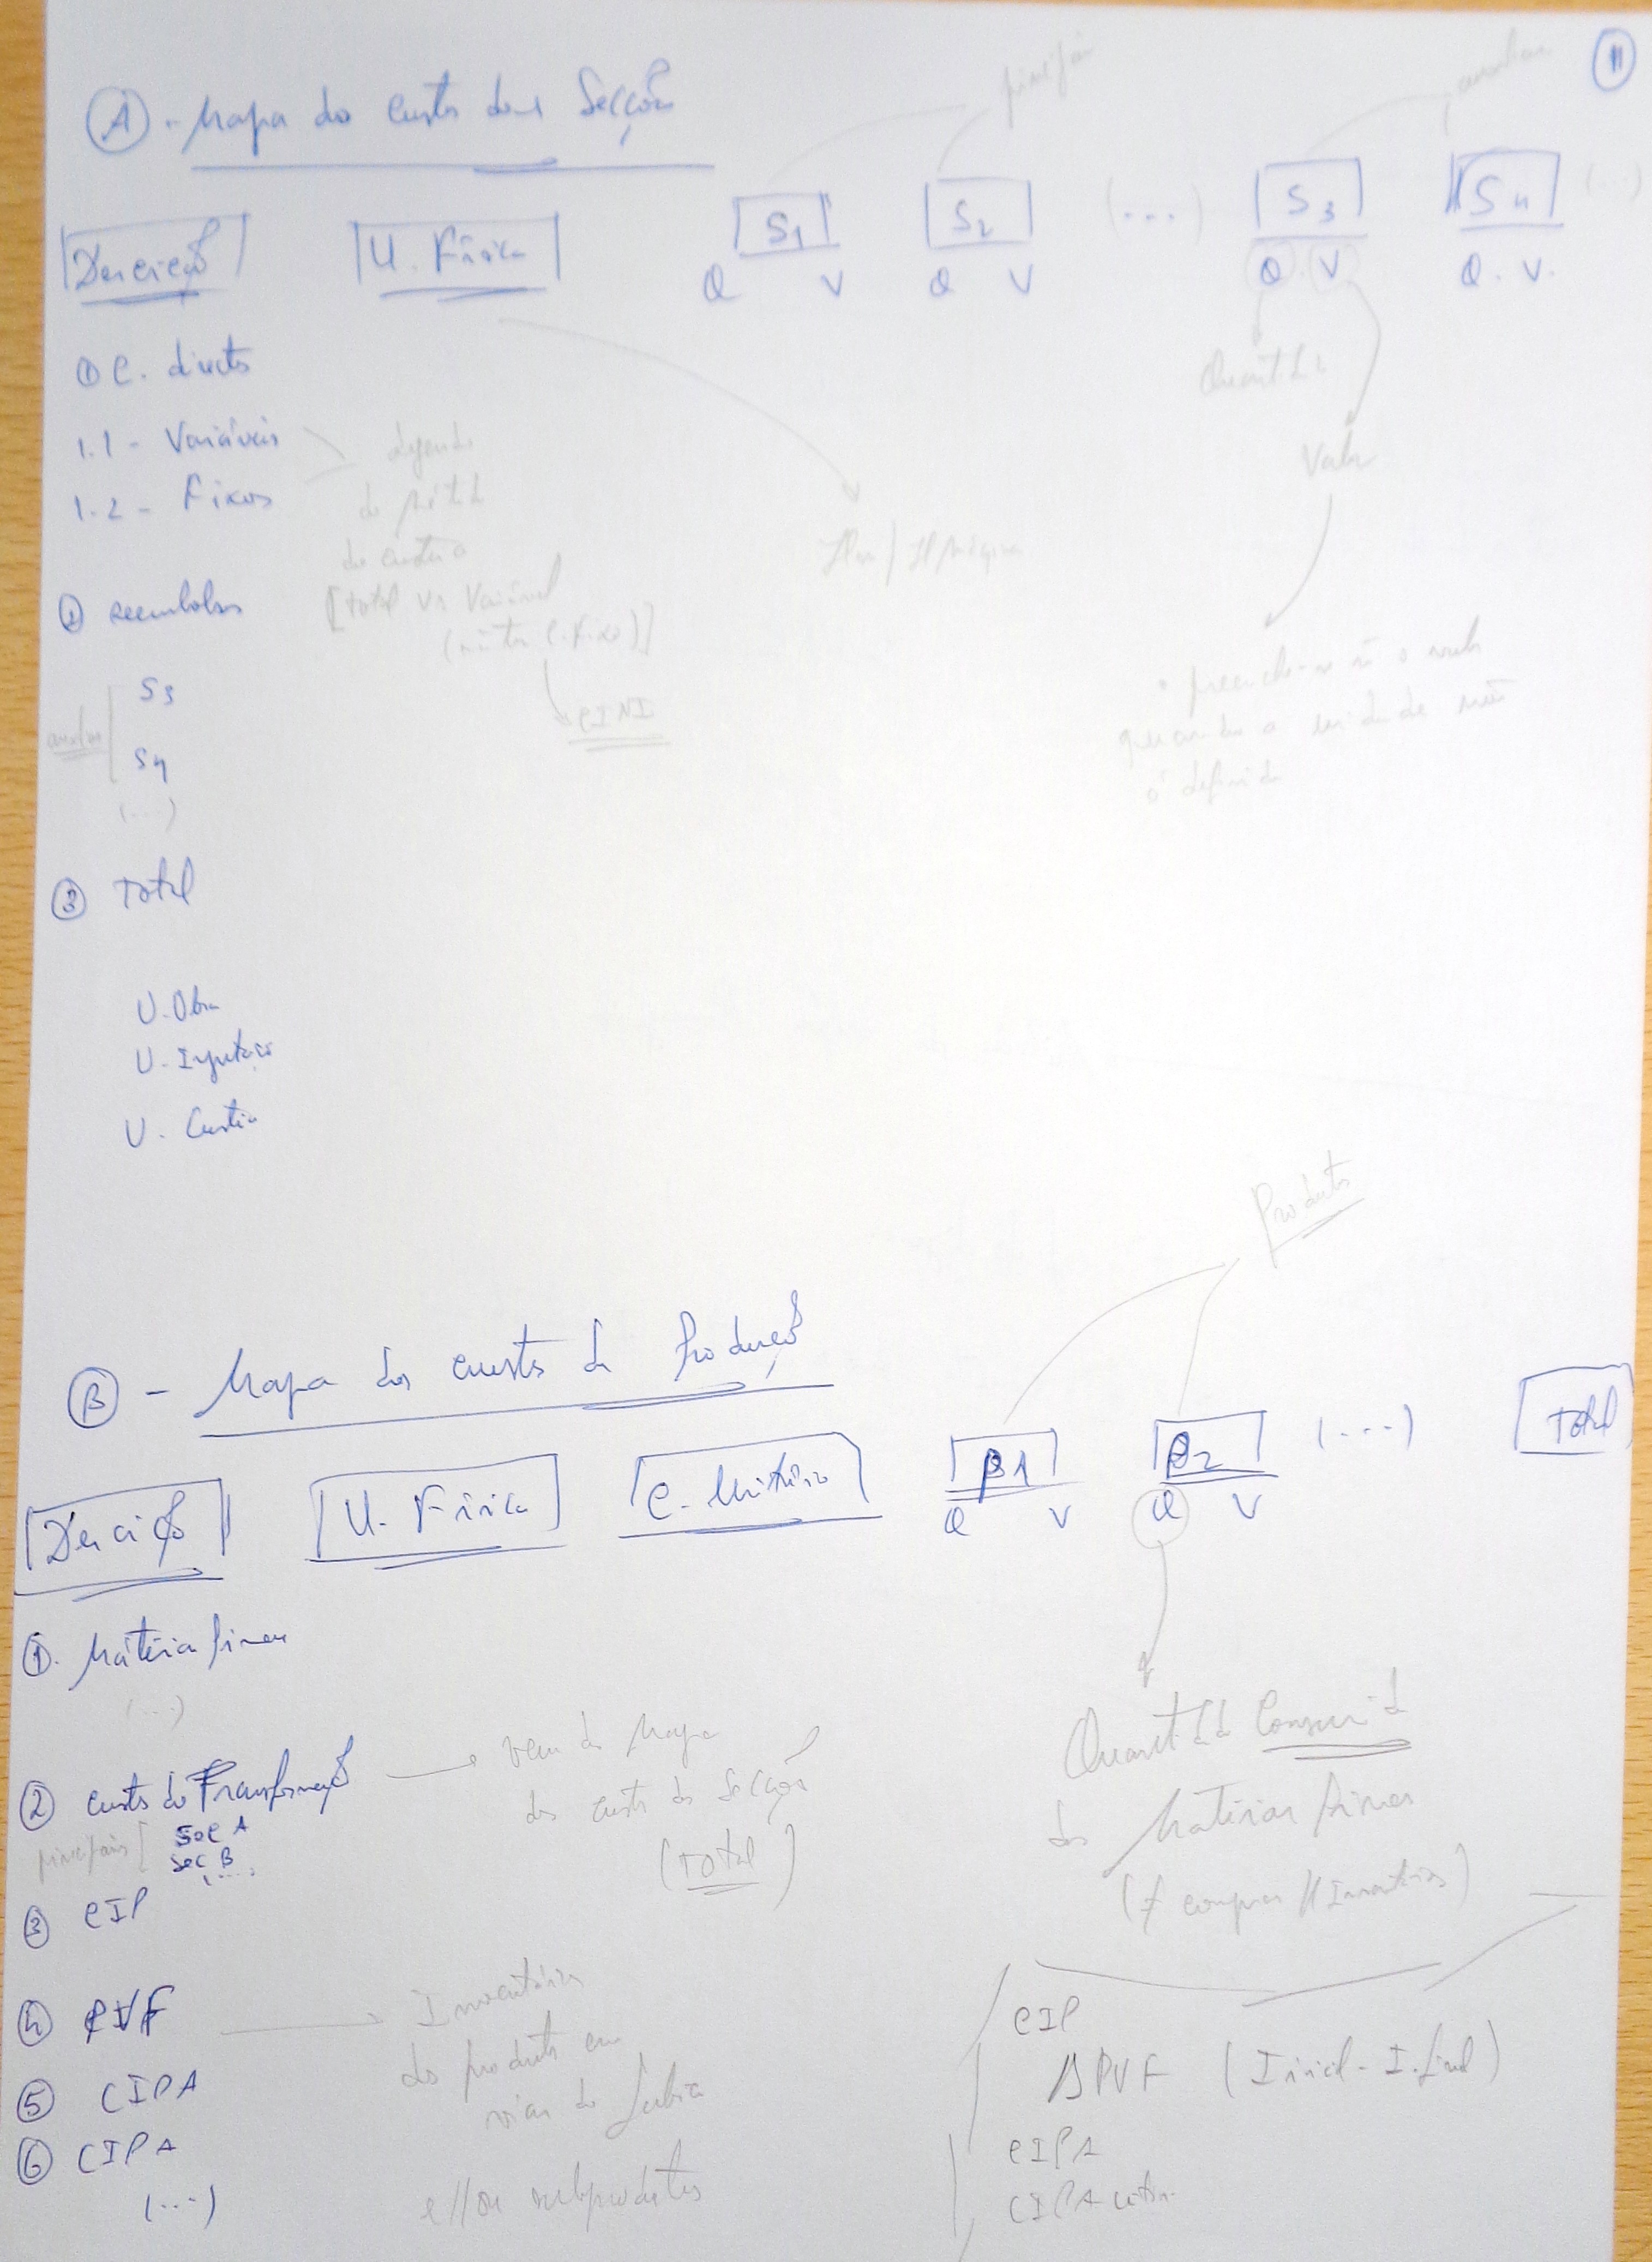 11
principais
auxiliares
A - Mapa do custo das Secções
S1 S2 (...) S3 S4 (...)
Descrição U. Física Q V Q V Q V Q. V.
Quantid
Valor
① C. directos
1.1 - Variáveis
1.2 - Fixos
depende
do
do custeio
[total vs Variável
(C. Fixo)]
CINI
H/Máquina
② Reembolsos
S3
S4
(...)
auxiliar
• preenche-se o valor
quando a unidade não
é definida
③ Total
U. Obra
U. Imputação
U. Custeio
Produtos
B - Mapa dos custos de Produção
Descrição U. Física C. Unitário P1 P2 (...) Total
Q V Q V
①. Matéria Primas
(...)
② custos de Transformação
principais [ Sec A
Sec B
....
vem do Mapa
dos custos das Secções
(Total)
Quantid Consumida
das Matérias Primas
(≠ compras // Inventários)
③ CIP
④ PVF
Inventários
dos produtos em
vias de fabrico
⑤ CIPA
⑥ CIPA
(...)
e//ou subprodutos
CIP
ΔPVF (I inicial - I. final)
CIPA
CIPA unitár.